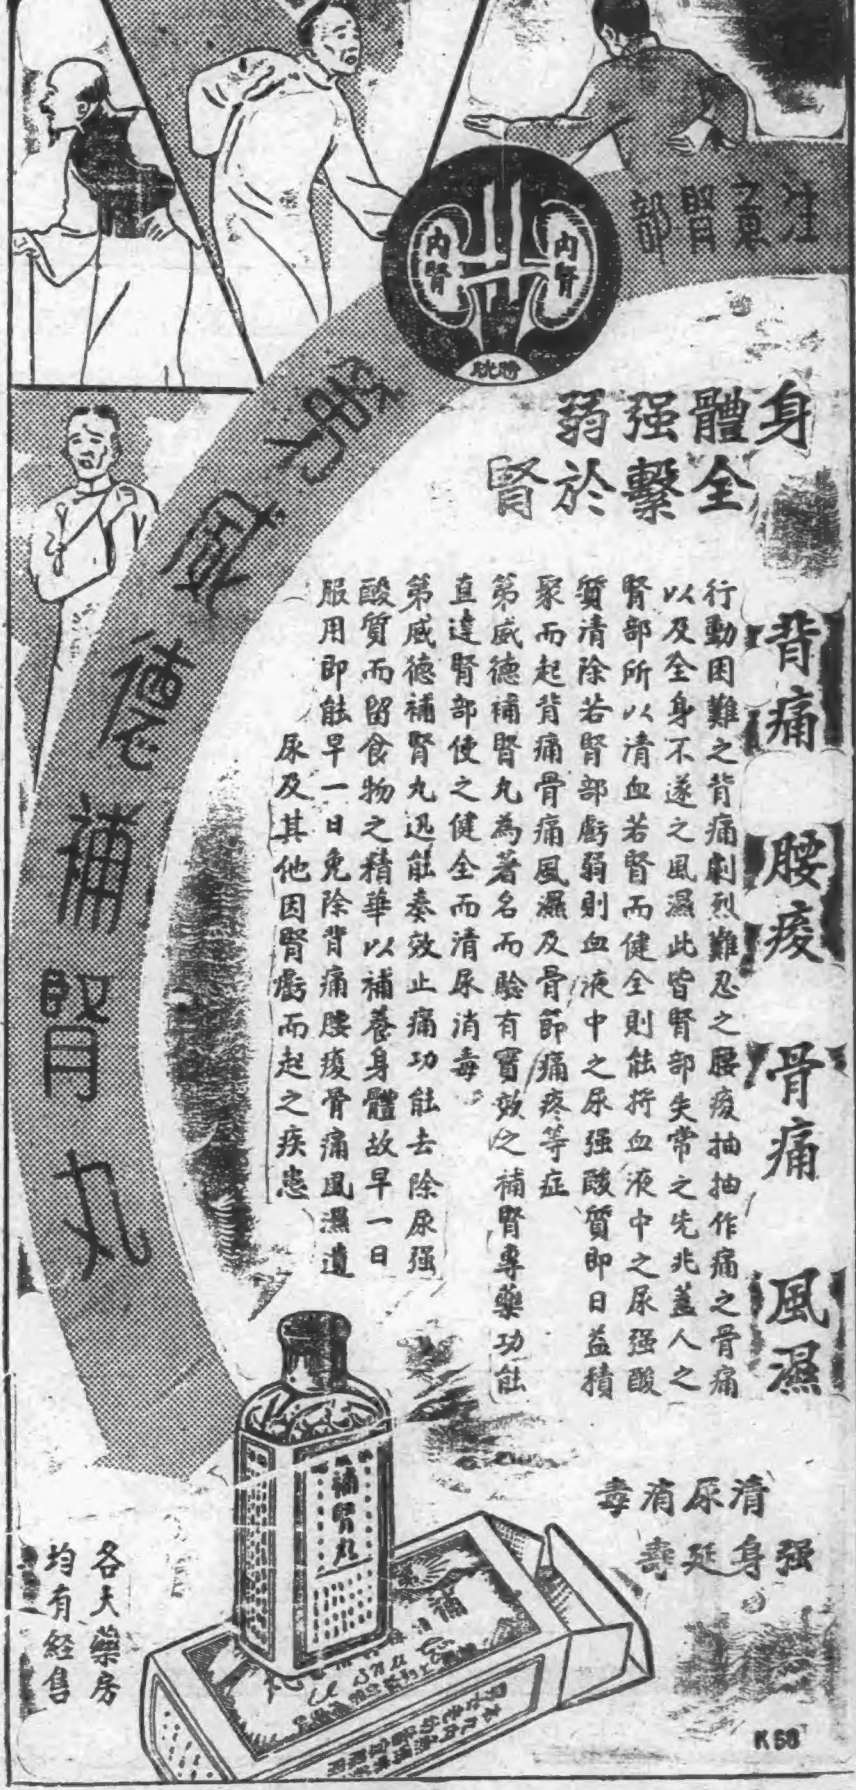 注意腎部
內腎
內腎
膀胱
身體强弱
全繫於腎
第威德補腎丸
背痛
腰痠
骨痛
風濕
行動困難之背痛劇烈難忍之腰痠抽抽作痛之骨痛
以及全身不遂之風濕此皆腎部失常之先兆蓋人之
腎部所以清血若腎而健全則能將血液中之尿强酸
質清除若腎部虧弱則血液中之尿强酸質即日益積
聚而起背痛骨痛風濕及骨節痛疼等症
第威德補腎丸為著名而驗有實效之補腎專藥功能
直達腎部使之健全而清尿消毒
第威德補腎丸迅能奏效止痛功能去除尿强
酸質而留食物之精華以補養身體故早一日
服用即能早一日免除背痛腰痠骨痛風濕遺
尿及其他因腎虧而起之疾患
清尿消毒
强身延壽
補腎丸
各大藥房
均有經售
K58